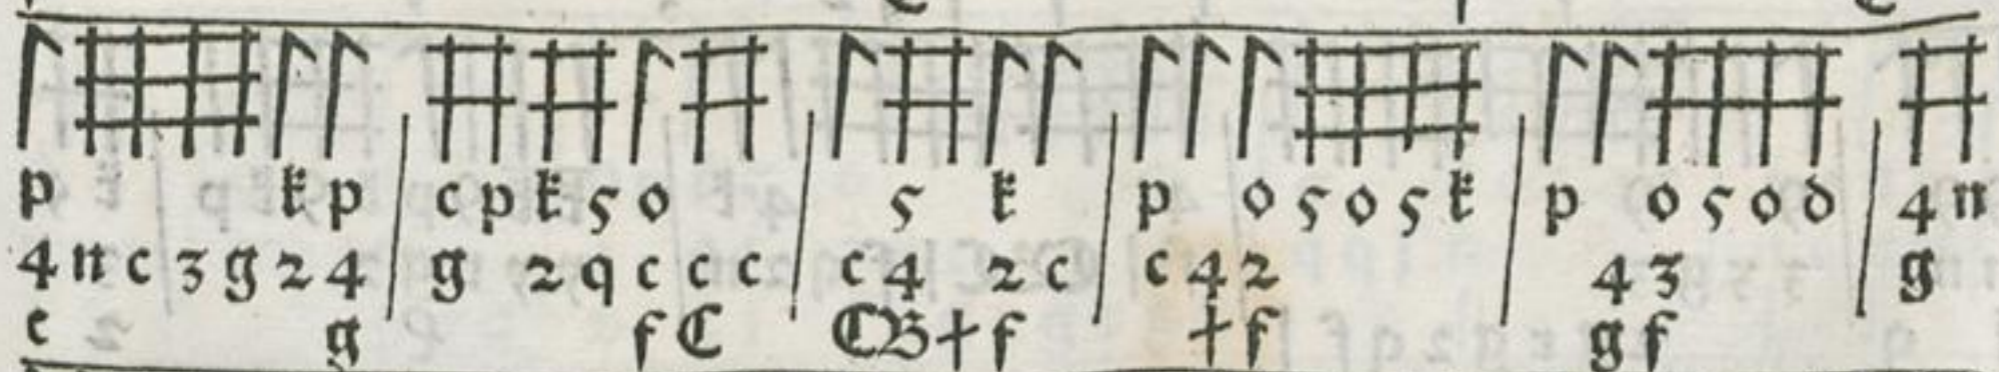 p k p | c p k 5 o 5 k | p o 5 o 5 k | p o 5 o d | 4 n
4 n c 3 g 2 4 | g 2 q c c c | c 4 2 c | c 4 2 | 4 3 | g
e g | f C | C B † f | † f | g f